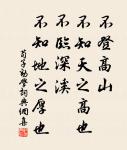 不登高山
不知天之高也
不臨深溪
不知地之厚也
荀子勸學詞典網集